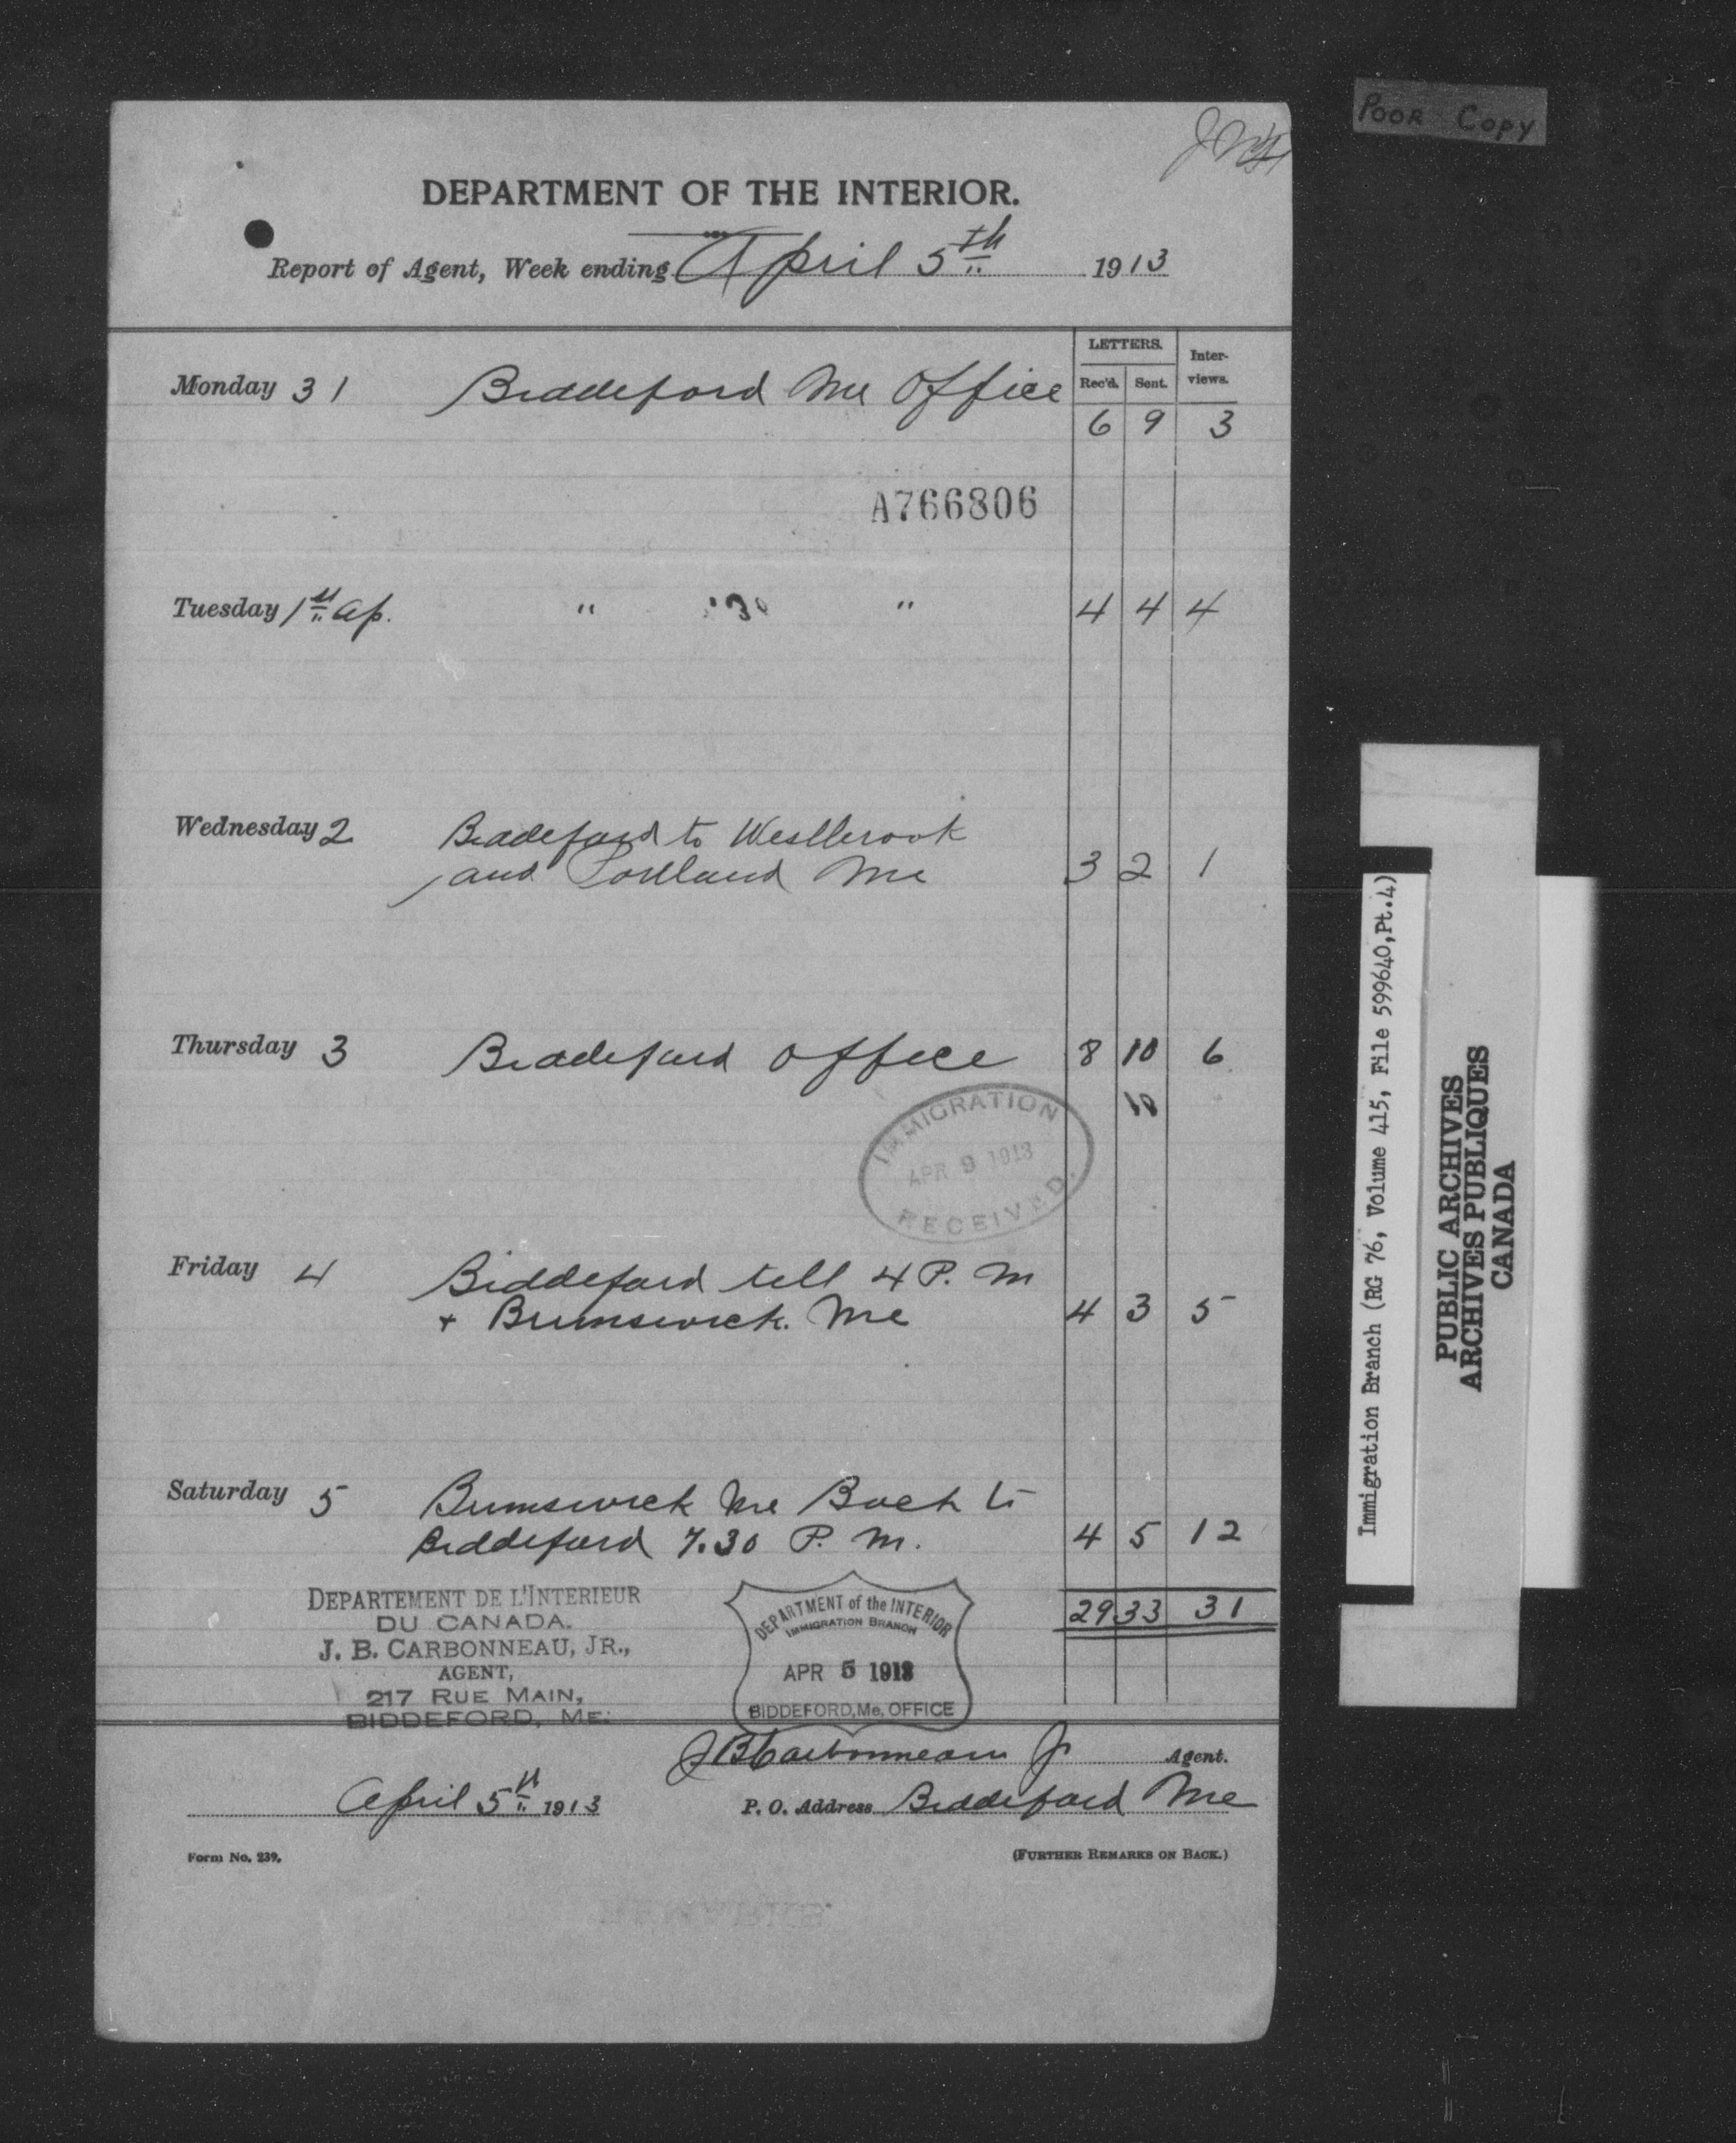 POOR COPY
DEPARTMENT OF THE INTERIOR.
Report of Agent, Week ending April 5th 1913
LETTERS.
Rec'd. Sent. Inter-views.
Monday 31 Biddeford Me Office
6 9 3
A766806
Tuesday 1st Ap. " " 4 4 4
Wednesday 2 Biddeford to Westbrook
and Portland Me 3 2 1
Thursday 3 Biddeford Office 8 10 6
10
IMMIGRATION
APR 9 1913
RECEIVED.
Friday 4 Biddeford till 4 P. M
+ Brunswick. Me 4 3 5
Saturday 5 Brunswick Me Back to
Biddeford 7.30 P. M. 4 5 12
29 33 31
DEPARTEMENT DE L'INTERIEUR
DU CANADA.
J. B. CARBONNEAU, JR.,
AGENT,
217 RUE MAIN,
BIDDEFORD, ME.
DEPARTMENT of the INTERIOR
IMMIGRATION BRANCH
APR 5 1913
BIDDEFORD, Me. OFFICE
J B Carbonneau Jr Agent.
April 5th 1913 P. O. Address Biddeford Me
Form No. 239. (FURTHER REMARKS ON BACK.)
Immigration Branch (RG 76, Volume 415, File 599640, Pt.4)
PUBLIC ARCHIVES
ARCHIVES PUBLIQUES
CANADA